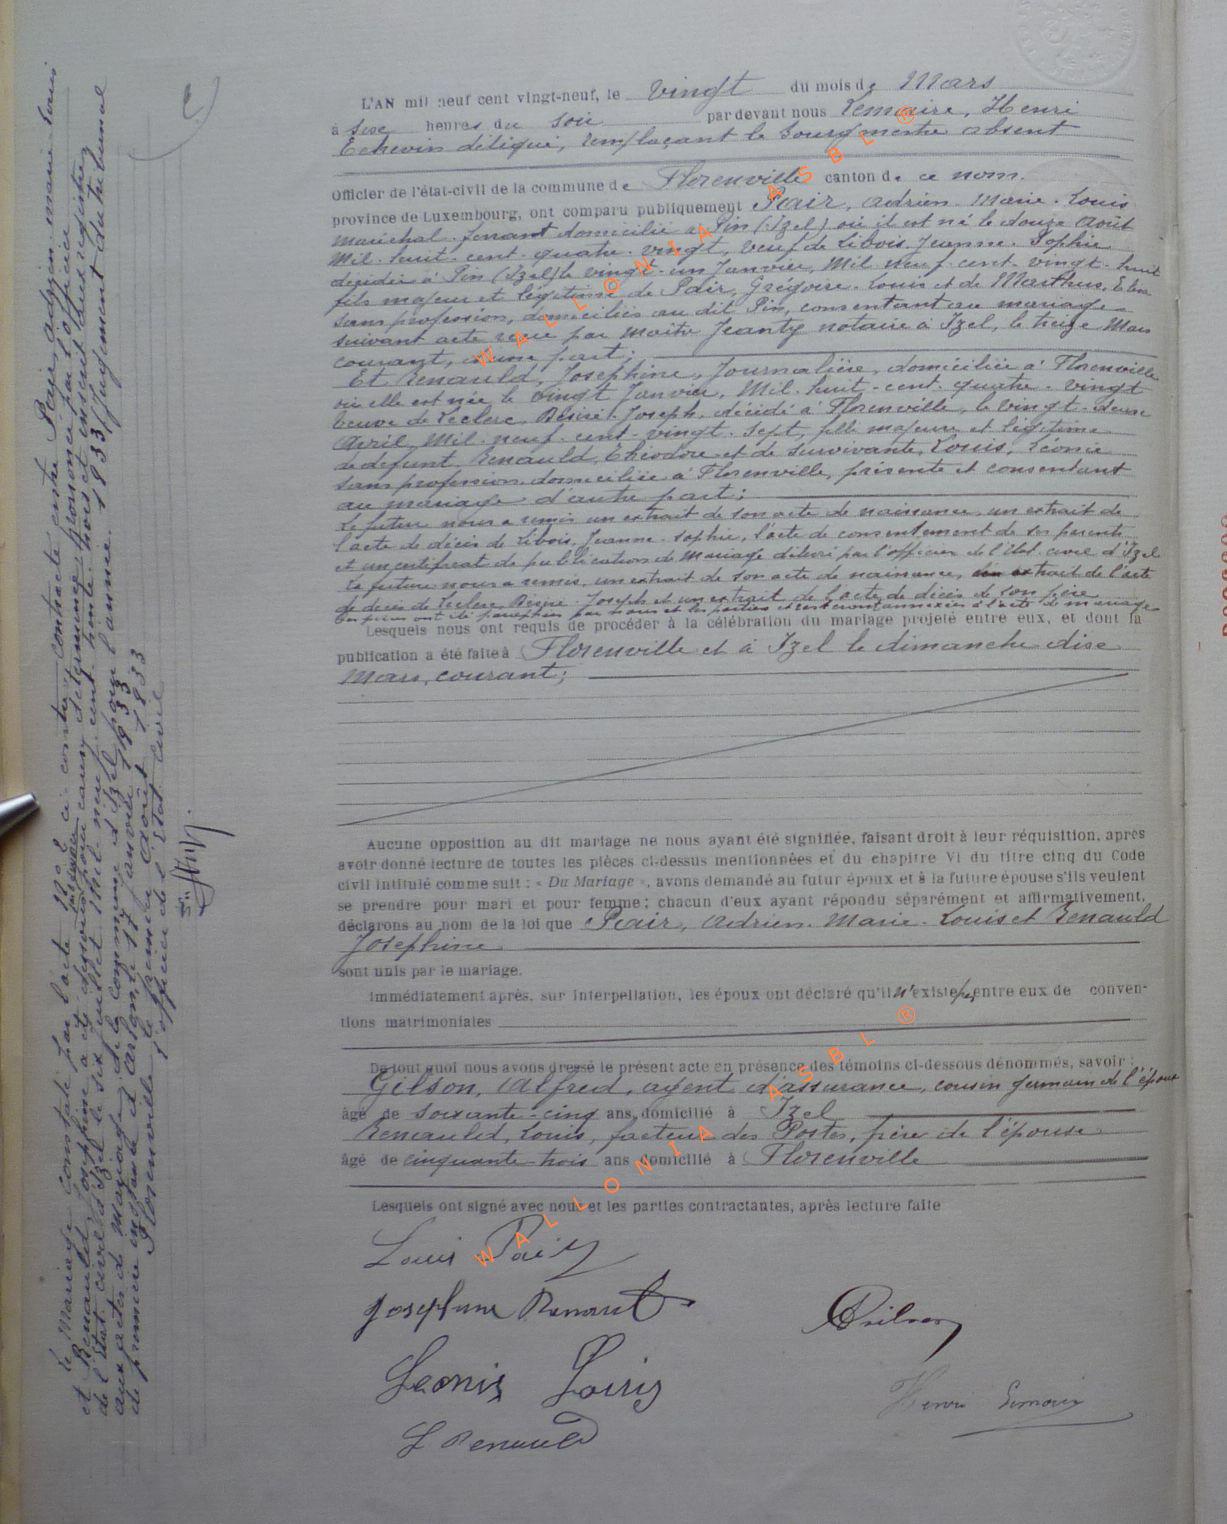 L'AN mil neuf cent vingt-neuf, le vingt du mois de Mars
à six heures du soir par devant nous Lemaire, Henri
Echevin délégué, remplaçant le bourgmestre absent
Officier de l'état-civil de la commune de Florenville canton de ce nom.
province de Luxembourg, ont comparu publiquement Pair, Adrien-Marie-Louis
Maréchal-ferrant domicilié à Pin (Izel) où il est né le douze Août
Mil-huit-cent-quatre-vingt, veuf de Libois, Jeanne-Sophie
décédée à Pin (Izel) le vingt-un Janvier, Mil-neuf-cent-vingt-huit
fils majeur et légitime de Pair, Grégoire-Louis et de
sans profession, domiciliés au dit Pin, consentant au mariage
suivant acte reçu par Maître Jeanty notaire à Izel, le treize Mars
courant, d'une part;
Et Renauld, Joséphine, Journalière, domiciliée à Florenville
où elle est née le vingt Janvier, Mil-huit-cent-quatre-vingt
veuve de Leclerc, Désiré-Joseph, décédé à Florenville, le vingt-deux
Avril, Mil-neuf-cent-vingt-sept, fille majeure et légitime
de défunt Renauld, Théodore et de survivante Louis, Léonie
sans profession domiciliée à Florenville, présente et consentant
au mariage d'autre part;
Le futur nous a remis un extrait de son acte de naissance, un extrait de
l'acte de décès de Libois, Jeanne-Sophie, l'acte de consentement de ses parents
et un certificat de publication de Mariage délivré par l'officier de l'état-civil d'Izel
La future nous a remis, un extrait de son acte de naissance, un extrait de l'acte
de décès de Leclerc, Désiré-Joseph et un extrait de l'acte de décès de son père
Ces pièces ont été paraphées par nous et les parties et seront annexées à l'acte de mariage
Lesquels nous ont requis de procéder à la célébration du mariage projeté entre eux, et dont la
publication a été faite à Florenville et à Izel le dimanche dix
Mars, courant;
Aucune opposition au dit mariage ne nous ayant été signifiée, faisant droit à leur réquisition, après
avoir donné lecture de toutes les pièces ci-dessus mentionnées et du chapitre VI du titre cinq du Code
civil intitulé comme suit : « Du Mariage », avons demandé au futur époux et à la future épouse s'ils veulent
se prendre pour mari et pour femme; chacun d'eux ayant répondu séparément et affirmativement,
déclarons au nom de la loi que Pair, Adrien-Marie-Louis et Renauld
Joséphine
sont unis par le mariage.
Immédiatement après, sur interpellation, les époux ont déclaré qu'il n'existe pas entre eux de conven-
tions matrimoniales
De tout quoi nous avons dressé le présent acte en présence des témoins ci-dessous dénommés, savoir :
Gilson, Alfred, agent d'assurance, cousin germain de l'époux
âgé de soixante-cinq ans, domicilié à Izel
Renauld, Louis, facteur des Postes, frère de l'épouse
âgé de cinquante trois ans domicilié à Florenville
Lesquels ont signé avec nous et les parties contractantes, après lecture faite
Louis Pair
Josephine Renault
Gilson
Leonie Louis
Henri Lemaire
L Renauld
Le Mariage constaté par l'acte n° 8 ci-contre, contracté entre Pair, Adrien-Marie-Louis
et Renauld, Joséphine a été dissous pour cause déterminée, prononcé par l'officier
de l'Etat civil d'Izel le six juillet mil neuf cent trente-trois et inscrit aux registres
aux actes de mariage de la commune d'Izel pour l'année 1933. Jugement du tribunal
de première instance d'Arlon, le 17 janvier 1933
Florenville le premier Août 1933
l'officier de l'Etat civil
WALLONIA ASBL ®
WALLONIA ASBL ®